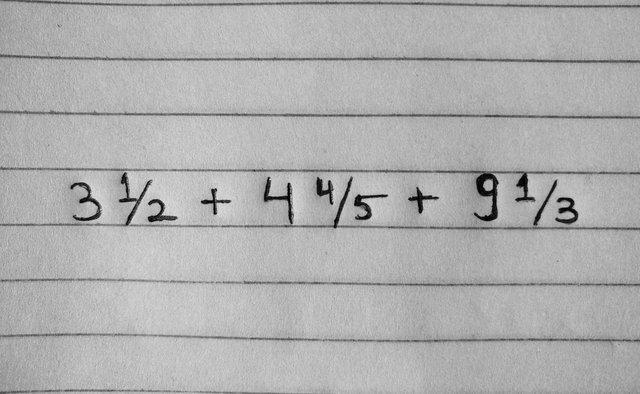 3 1/2 + 4 4/5 + 9 1/3